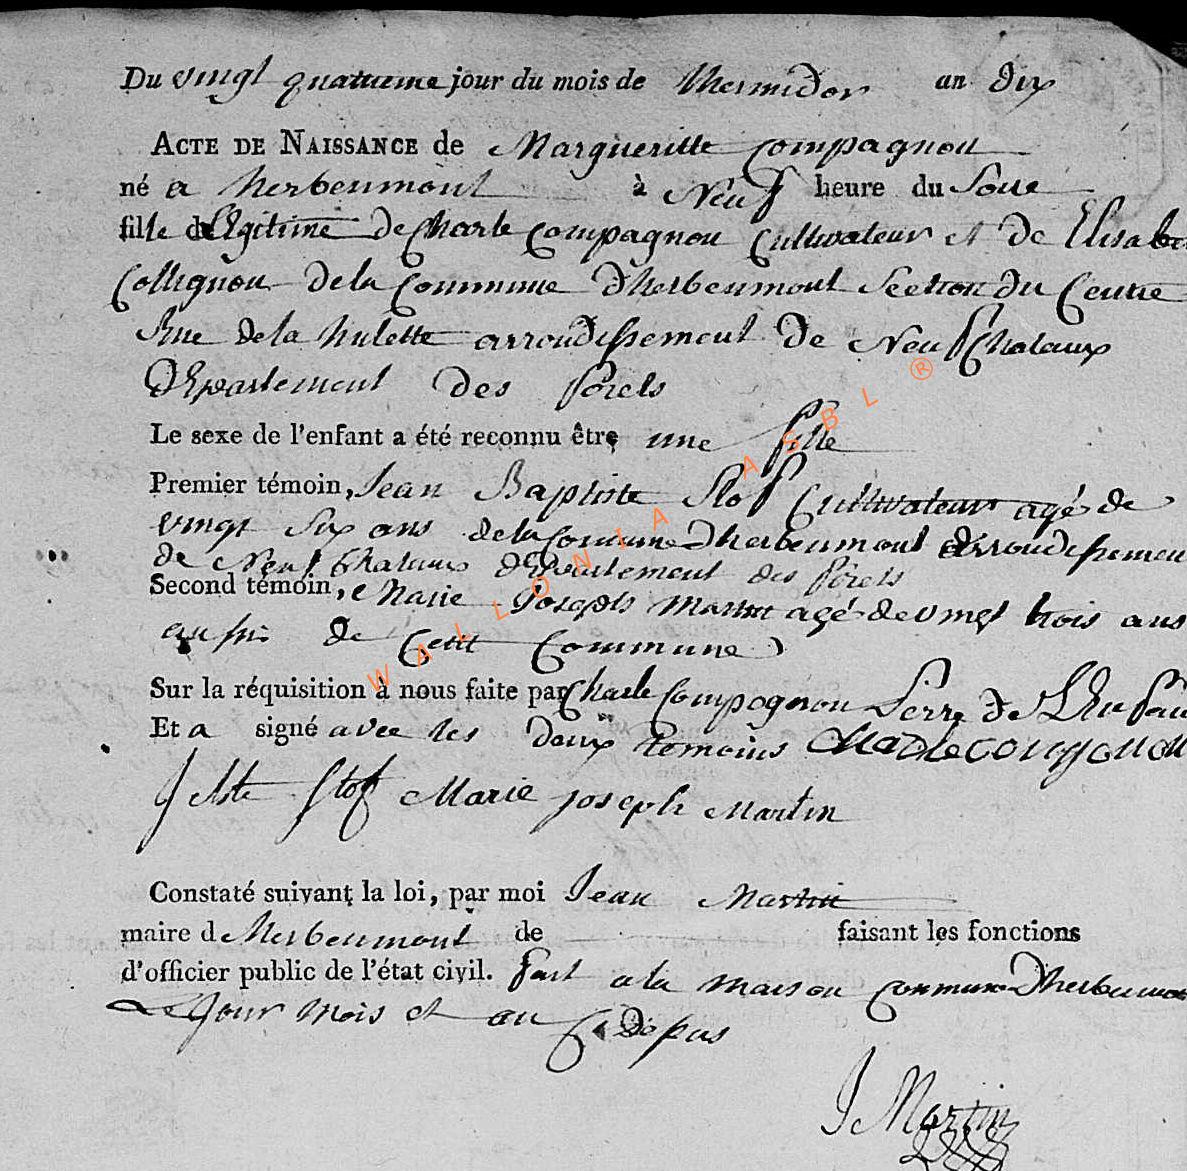 Du vingt quatrieme jour du mois de thermidor an dix
ACTE DE NAISSANCE de Margueritte Compagnon
né a herbeumont à Neuf heure du Soire
fille de légitime de Charle Compagnon Cultivateur et de Elisabet
Collignon de la Commune d'herbeumont Section du Centre
Rue de la hulette arrondissement de Neufchataux
Département des forets
Le sexe de l'enfant a été reconnu être une fille
Premier témoin, Jean Baptiste Stof Cultivateur agé de
vingt Six ans de la Comune d'herbeumont arrondissement
de Neufchataux département des forets
Second témoin, Marie Joseph Martin agé de vingt trois ans
aussi de Cette Commune
Sur la réquisition à nous faite par Charle Compagnon Perre de L'Enfant
Et a signé avec les deux temoins
J bte Stof Marie joseph Martin
Constaté suivant la loi, par moi Jean Martin
maire d herbeumont de faisant les fonctions
d'officier public de l'état civil. fait a la maison Commune D'herbeumont
Le Jour mois et an
J Martin
WALLONIA ASBL ®